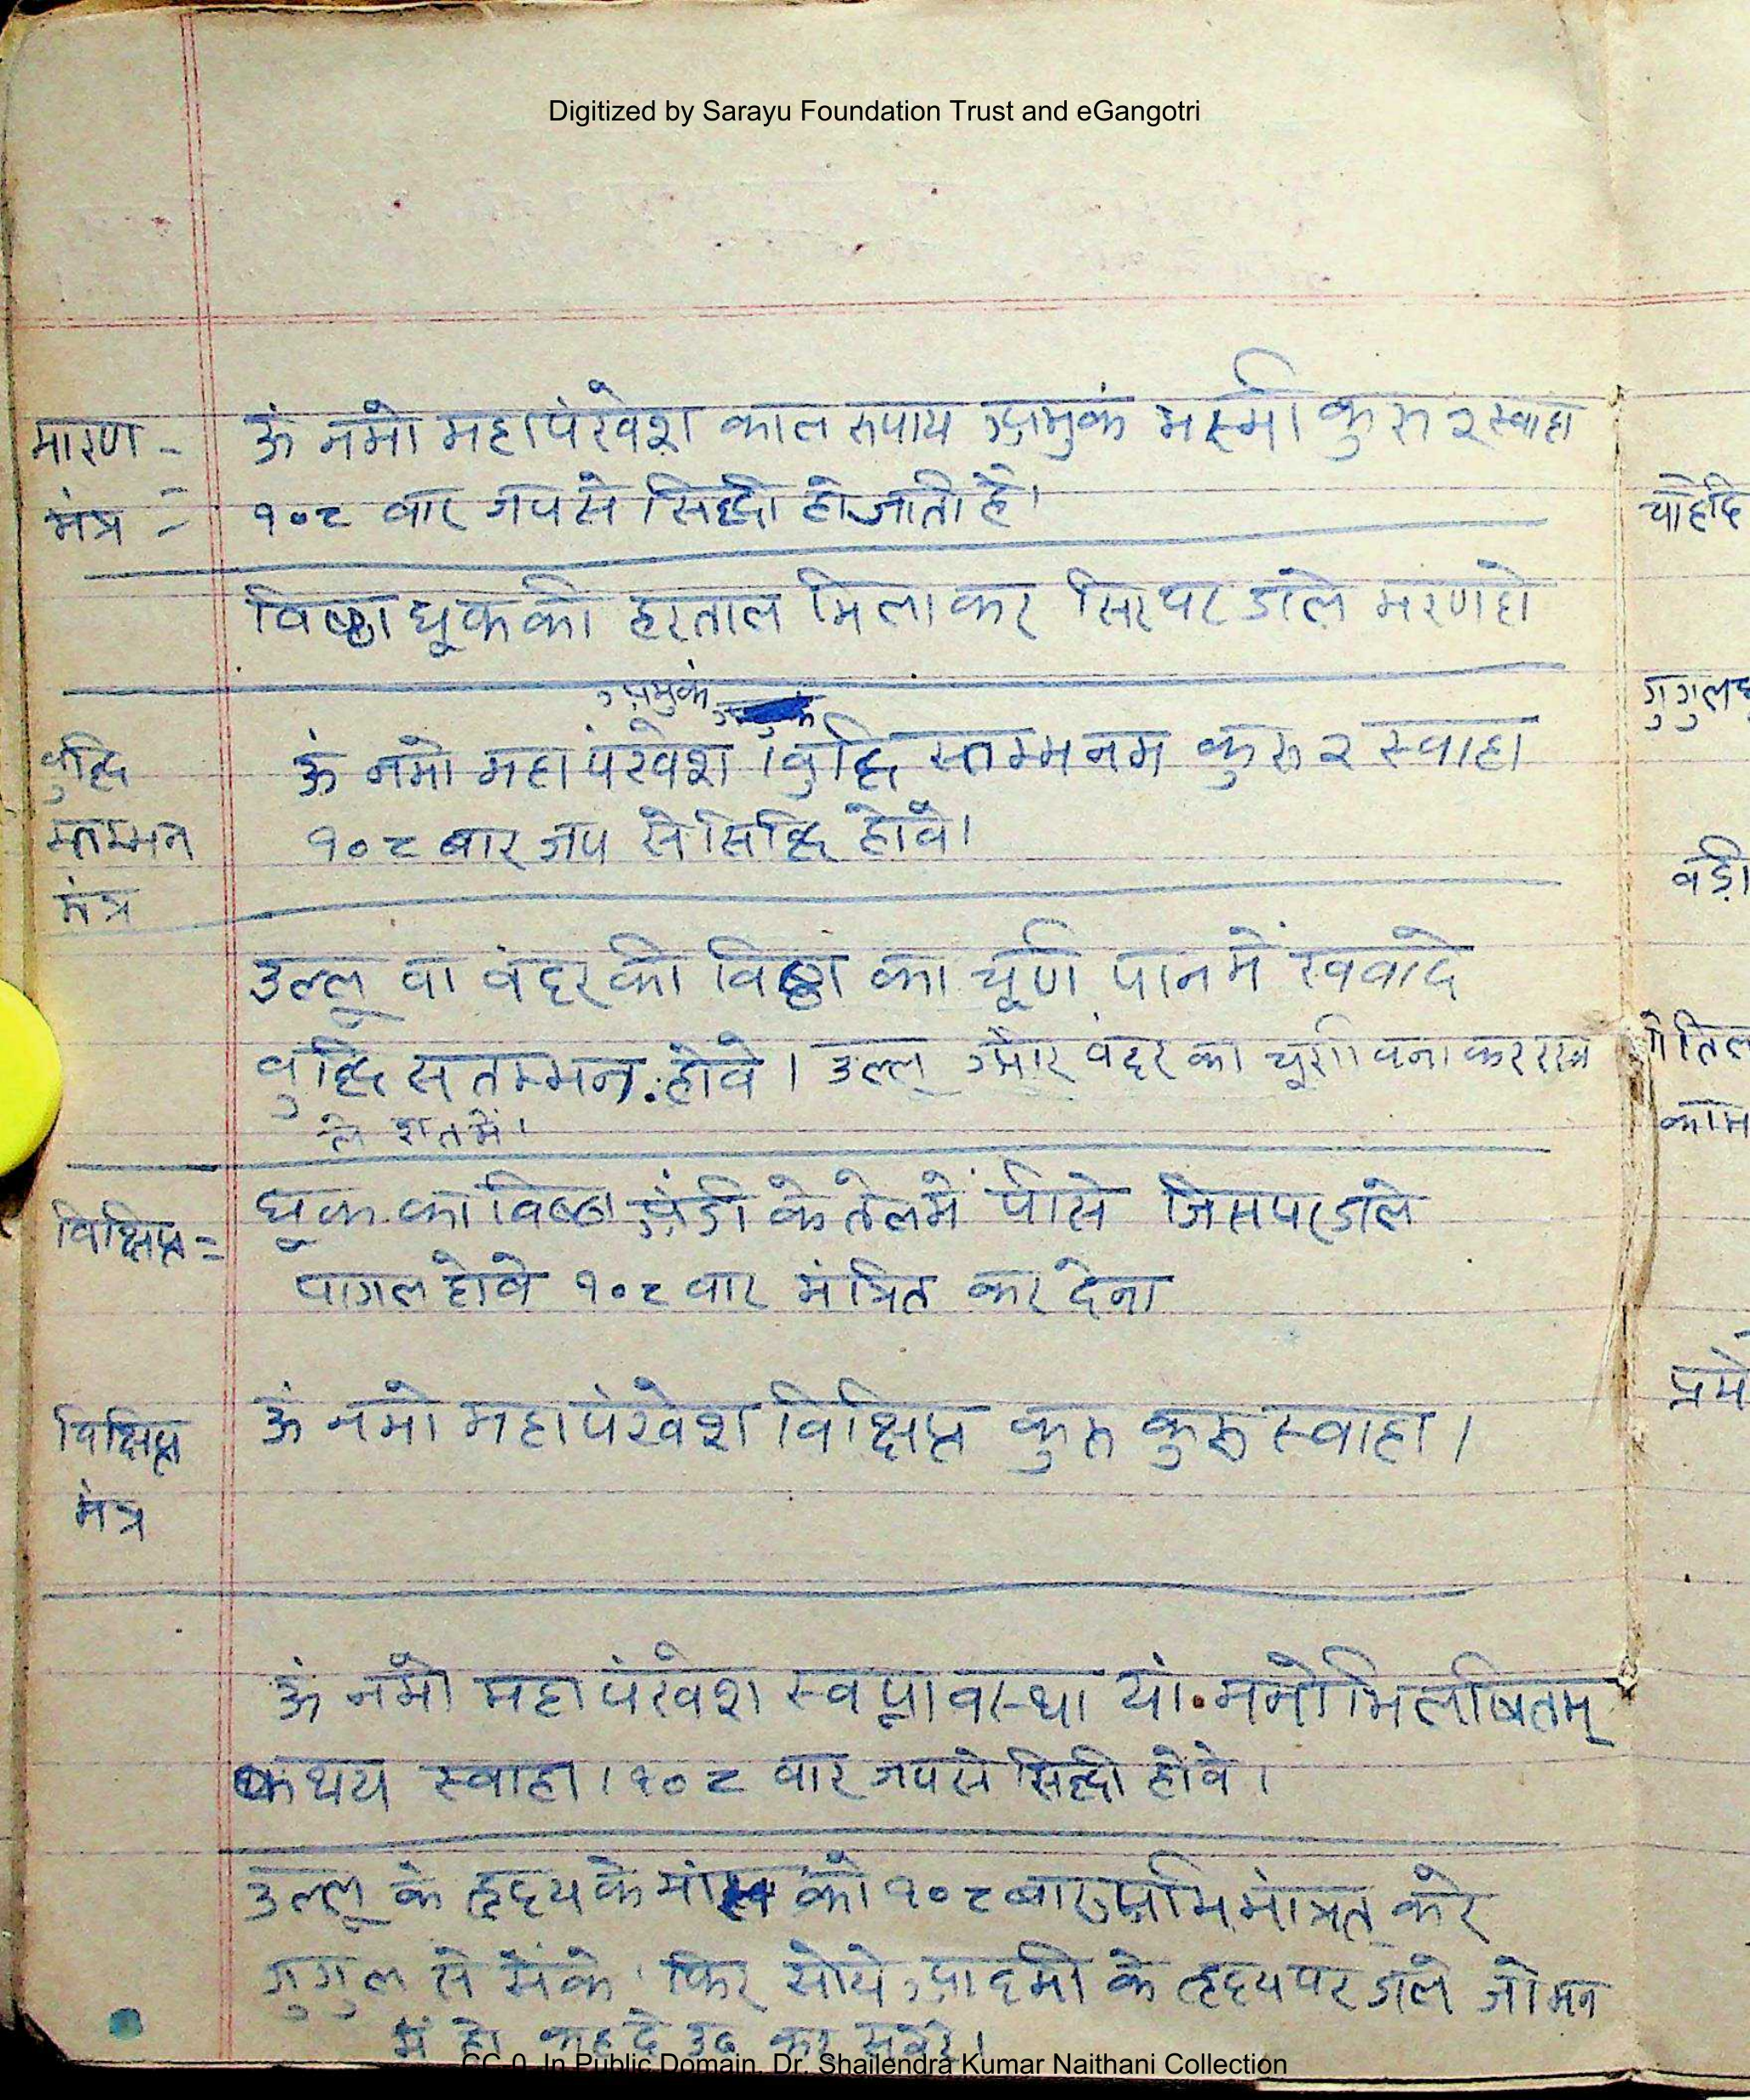 Digitized by Sarayu Foundation Trust and eGangotri
मारण - ऊं नमो महापंखेश काल रुपाय अमुकं भस्मी कुरु २ स्वाहा
मंत्र = १०८ वार जपसे सिद्धी होजाती है।
विष्ठा घूककी हरताल मिलाकर सिरपर डाले मरणहो
अमुकं
बुद्धि ऊं नमो महापंखेश । बुद्धि स्तम्भनम कुरु २ स्वाहा
स्तम्भन १०८ बार जप से सिद्धि होवे।
मंत्र
उल्लू वा वंदर की विष्ठा का चूर्ण पानमें खवादे
वुद्धि सतम्भन. होवे । उल्लू और वंदर का चूर्ण वनाकर राख
ले रातमें।
विक्षिप्त = घूक का विष्ठा अंडी के तेलमें पीसे जिसपर डाले
पागल होवे १०८ वार मंत्रित कर देना
विक्षिप्त ऊं नमो महापंखेश विक्षिप्त कुरु कुरु स्वाहा ।
मंत्र
ऊं नमो महापंखेश स्वप्नावस्था यां. मनोभिलाषितम्
कथय स्वाहा । १०८ वार जपसे सिद्धी होवे ।
उल्लू के हृदय के मांस को १०८ बार अभिमंत्रित करे
गुगुल से सेंके । फिर सोये आदमी के हृदय पर डाले जो मन
में हो कहदे उठ कर सवेरे।
चाहेदि
गुगुल
वड़ी
काम
प्रमे
CC-0. In Public Domain. Dr. Shailendra Kumar Naithani Collection